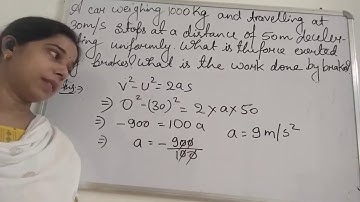 A car weighing 1000 kg and travelling at
30m/s stops at a distance of 50m deceler-
ating uniformly. What is the force exerted
by brakes? What is the work done by brakes
Ans:-
v² - u² = 2as
⇒ 0² - (30)² = 2 × a × 50
⇒ -900 = 100 a
⇒ a = - 900/100
a = 9 m/s²